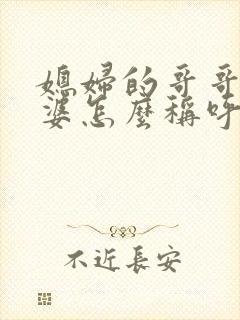 媳婦的哥哥
婆怎麼稱呼
不近長安